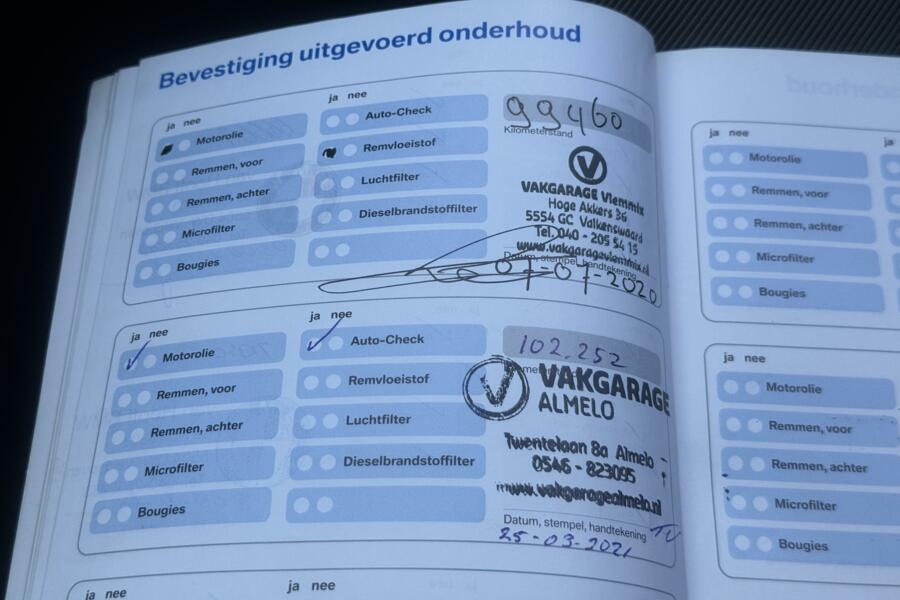 Bevestiging uitgevoerd onderhoud
ja nee
Motorolie
Remmen, voor
Remmen, achter
Microfilter
Bougies
ja nee
Auto-Check
Remvloeistof
Luchtfilter
Dieselbrandstoffilter
99460
Kilometerstand
VAKGARAGE Vlemmix
Hoge Akkers 36
5554 GC Valkenswaard
Tel. 040 - 205 54 15
www.vakgaragevlemmix.nl
Datum, stempel, handtekening
07-07-2020
ja nee
Motorolie
Remmen, voor
Remmen, achter
Microfilter
Bougies
ja nee
Auto-Check
Remvloeistof
Luchtfilter
Dieselbrandstoffilter
102.252
VAKGARAGE
ALMELO
Twentelaan 8a Almelo
0546 - 823095
www.vakgaragealmelo.nl
Datum, stempel, handtekening
25-03-2021
ja nee
ja nee
ja nee
Motorolie
Remmen, voor
Remmen, achter
Microfilter
Bougies
ja
ja nee
Motorolie
Remmen, voor
Remmen, achter
Microfilter
Bougies